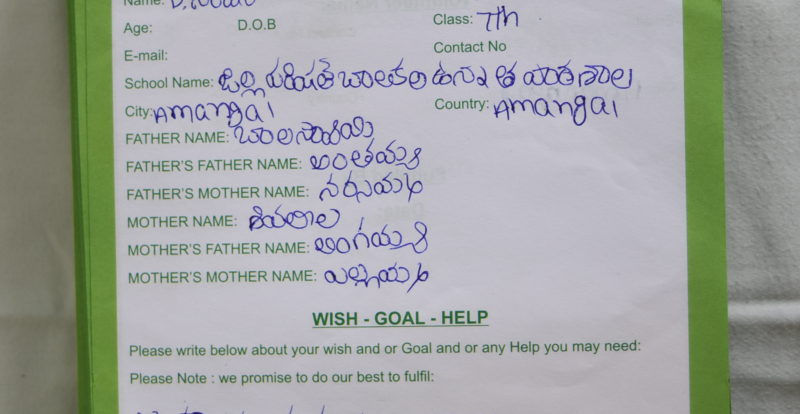 Name:
Age: D.O.B Class: 7th
E-mail: Contact No
School Name: జిల్లా పరిషత్ బాలికల ఉన్నత పాఠశాల
City: Amangal Country: Amangal
FATHER NAME:
FATHER'S FATHER NAME: అంతయ్య
FATHER'S MOTHER NAME: నర్సమ్మ
MOTHER NAME:
MOTHER'S FATHER NAME: లింగయ్య
MOTHER'S MOTHER NAME: ఎల్లమ్మ
WISH - GOAL - HELP
Please write below about your wish and or Goal and or any Help you may need:
Please Note : we promise to do our best to fulfil: